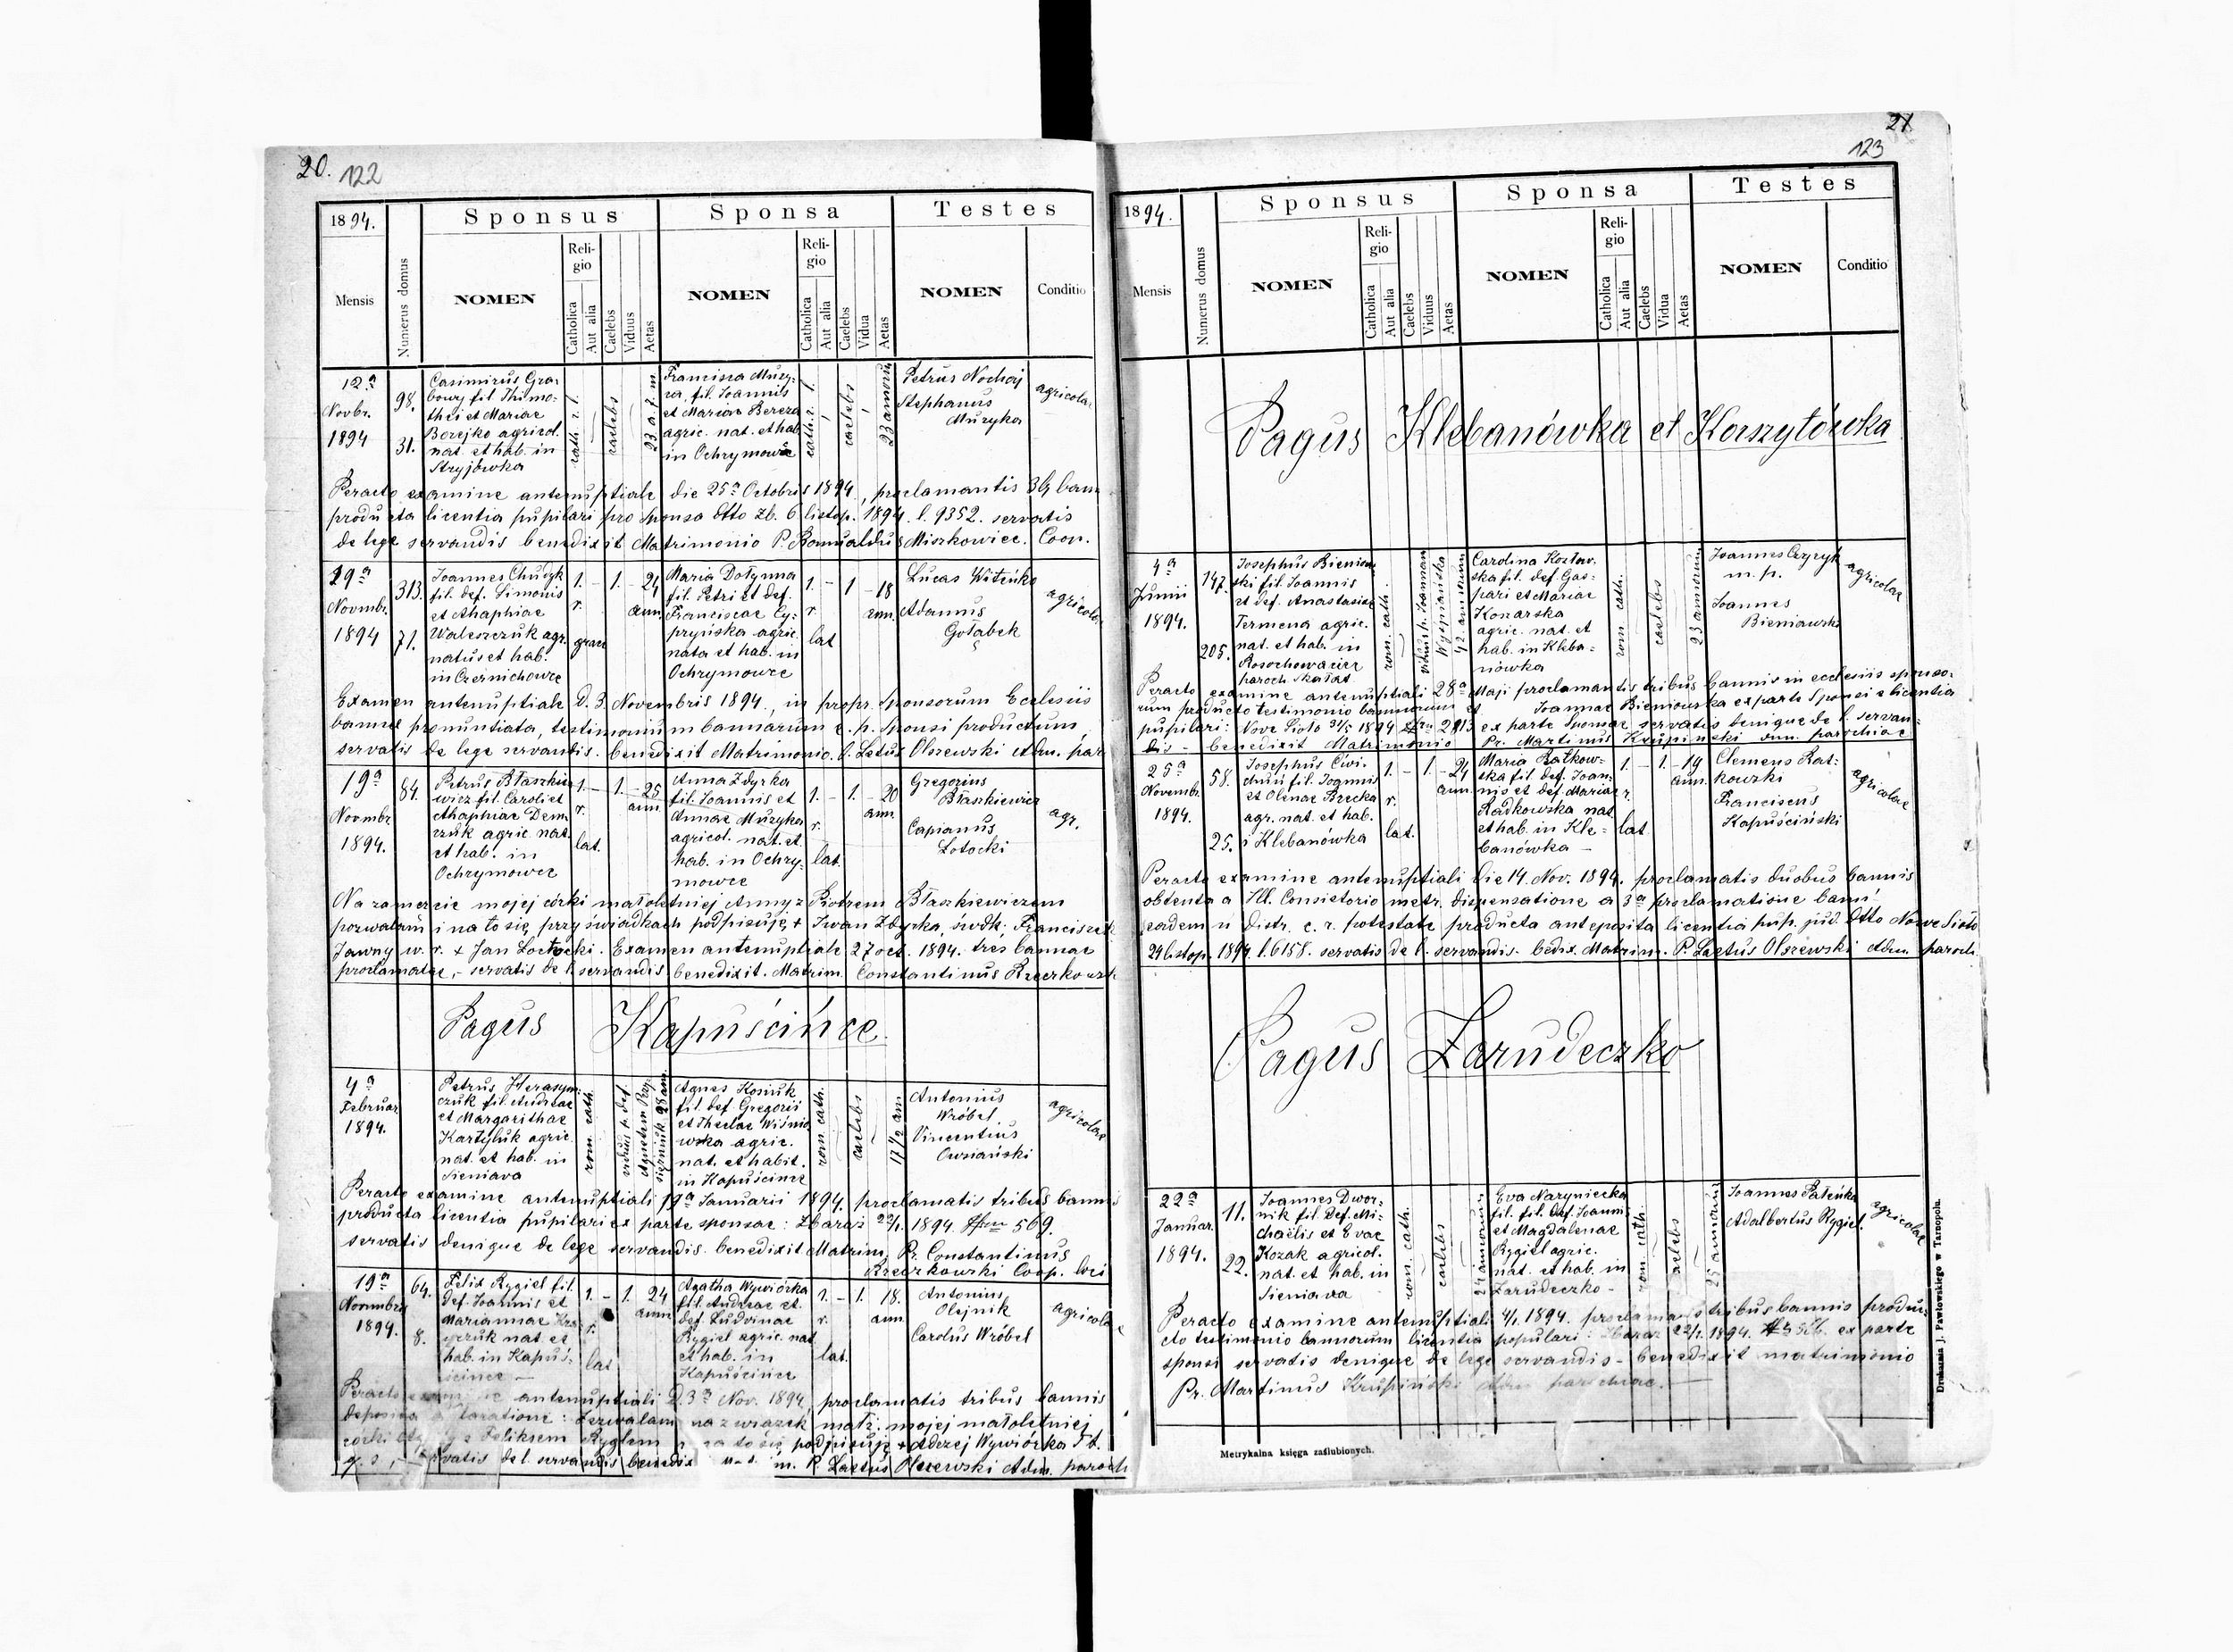 20. 122
1894.
Sponsus
Sponsa
Testes
Mensis
Numerus domus
NOMEN
Religio
Catholica
Aut alia
Caelebs
Viduus
Aetas
NOMEN
Religio
Catholica
Aut alia
Caelebs
Vidua
Aetas
NOMEN
Conditio
12a
Novbr.
1894
98.
31.
Casimirus Gra-
bowy fil. Thimo-
thei et Mariae
Borejko agricol.
nat. et hab. in
Stryjówka
cath. r. l.
caelebs
23 a. 7. m.
Francisca Muzy-
ka, fil. Joannis
et Mariae Bereza
agric. nat. et hab.
in Ochrymowce
cath. r. l.
caelebs
23 annorum
Petrus Nochaj
Stephanus
Muzyka
agricolae
Peracto examine antenuptiale die 25a Octobris 1894, proclamantis 3b bann
producta licentia pupilari pro Sponsa dtto Zb. 6 listop. 1894. l. 9352. servatis
de lege servandis benedixit Matrimonio P. Romualdus Miszkowicz. Coop.
29a
Novmbr.
1894
313.
71.
Joannes Chudyk
fil. def. Simonis
et Ahaphiae
Waleszczuk agr.
natus et hab.
in Czernichowce
1. – 1. – 24
r. ann.
graec
Maria Dołynna
fil. Petri et def.
Franciscae Cy-
pryńska agric.
nata et hab. in
Ochrymowce
1. – 1 – 18
r. ann.
lat
Lucas Witeńko
Adamus
Gołąbek
agricolae
Examen antenuptiale D. 3 Novembris 1894, in propr. Sponsorum Ecclesiis
bannae pronuntiata, testimonium bannarum e. p. Sponsi productum,
servatis de lege servandis. benedixit Matrimonio. P. Letus Olszewski adm. par
19a
Novmbr.
1894.
84.
Petrus Błaszkie
wicz fil. Caroli et
Ahaphiae Dem
czuk agric. nat.
et hab. in
Ochrymowce
1. – 1. – 25
r. ann.
lat.
Anna Zdyrka
fil. Joannis et
Annae Muzyka
agricol. nat. et.
hab. in Ochry-
mowce
1. – 1. – 20
r. ann.
lat.
Gregorius
Błaszkiewicz
Capianus
Łotocki
agr.
Na zamęście mojej córki małoletniej Anny z Piotrem Błaszkiewiczem
pozwalam i na to się, przy świadkach podpisuję + Iwan Zdyrka, świdk: Franciszek
Jawny w. r. + Jan Łoctocki. Examen antenuptiale 27 oct. 1894. tres bannae
proclamatae, – servatis de l. servandis benedixit. Matrim. Constantinus Rzeczkowski
Pagus Kapuścińce.
4a
Februar.
1894.
Petrus Herasym-
czuk fil. Andreae
et Margarithae
Kartyluk agric.
nat. et hab. in
Sieniava
rom. cath.
viduus p. def.
28 ann.
Agnes Kosiuk
fil. def. Gregorii
et Theclae Wiśnio
wska agric.
nat. et habit.
in Kapuścince
rom. cath.
caelebs
17 1/2 ann
Antonius
Wróbel
Vincentius
Owsiański
agricolae
Peracto examine antenuptiali 19a Januarii 1894. proclamatis tribus bannis
producta licentia pupilari ex parte sponsae: Zbaraż 22/1. 1894 569.
servatis denique de lege servandis. benedixit Matrim. Pr. Constantinus
Rzeczkowski Coop. loci
19a
Novmbris
1894.
64.
8.
Felix Rygiel fil.
def. Joannis et
Mariannae Kra
yczuk nat. et
hab. in Kapuś-
cince –
1. – 1. 24
r. ann.
lat
Agatha Wywiórka
fil. Andreae et.
def. Ludvinae
Rygiel agric. nat
et hab. in
Kapuścince
1. – 1. 18.
r. ann.
lat.
Antonius
Olejnik
Carolus Wróbel
agricolae
Peracto examine antenuptiali D. 3a Nov. 1894, proclamatis tribus bannis
deposita Zezwalam na związek małż. mojej małoletniej
córki z Feliksem Ryglem na to się podpisuję + Ądrzej Wywiórka
servatis de l. servandis benedix m. P. Laetus Olszewski Adm. paroch

21
123
1894.
Sponsus
Sponsa
Testes
Mensis
Numerus domus
NOMEN
Religio
Catholica
Aut alia
Caelebs
Viduus
Aetas
NOMEN
Religio
Catholica
Aut alia
Caelebs
Vidua
Aetas
NOMEN
Conditio
Pagus Klebanówka et Korszytówka
4a
Junii
1894.
147.
205.
Josephus Bieniow
ski fil. Joannis
et def. Anastasiae
Termena agric.
nat. et hab. in
Rosochowaciec
paroch. Skałat
rom. cath.
viduus p. Joannam
Wyspiańska
42 annorum
Carolina Kozłow-
ska fil. def. Gas-
pari et Mariae
Konarska
agric. nat. et
hab. in Kleba-
nówka
rom. cath.
caelebs
23 annorum
Joannes Czyczyk
m. p.
Joannes
Bieniawski
agricolae
Peracto examine antenuptiali 28a Maji proclamantis tribus bannis in ecclesiis sponso-
rum producto testimonio bannorum et Joannae Bieniowska ex parte Sponsi e licentia
pupilari: Nove Sioło 31/5 1894 2813 ex parte Sponsae servatis denique de l. servan-
dis – benedixit Matrimonio Pr. Martinus Krupinski adm. parochiae
25a
Novembr.
1894.
58.
25.
Josephus Cwi-
duń fil. Joannis
et Olenae Brecka
agr. nat. et hab.
i Klebanówka
1. – 1. – 24
r. ann.
lat.
Maria Ratkow-
ska fil. def. Joan-
nis et def. Mariae
Radkowska nat
et hab. in Kle-
banówka –
1. – 1. – 19
r. ann.
lat
Clemens Rat-
kowski
Franciscus
Kapuściński
agricolae
Peracto examine antenuptiali die 14. Nov. 1894. proclamatis duobus bannis
obtenta a Ill. Consistorio metr. dispensatione a 3a proclamatione banni
eadem n distr. c. r. potestate producta anteposita licentia pup. jud. dtto Nowe Sioło
24 listop. 1894 l. 6158. servatis de l. servandis. bedix. Matrim. P. Laetus Olszewski adm. paroch.
Pagus Zarudeczko
22a
Januar.
1894.
11.
22.
Joannes Dwor-
nik fil. def. Mi-
chaëlis et Evae
Kozak agricol.
nat. et hab. in
Sieniawa
rom. cath.
caelebs
24 annorum
Eva Naryniecka
fil. fil. def. Joannis
et Magdalenae
Rygiel agric.
nat. et hab. in
Zarudeczko –
rom. cath.
caelebs
25 annorum
Joannes Pałeńka
Adalbertus Rygiel.
agricolae
Peracto examine antenuptiali 4/1. 1894. proclamatis tribus bannis produ-
cto testimonio bannorum licentia populari: Zbaraz 22/1. 1894. ex parte
sponsi servatis denique de lege servandis – benedixit matrimonio
Pr. Martinus Krupiński Adm parochiae. –
Metrykalna księga zaślubionych.
Drukarnia J. Pawłowskiego w Tarnopolu.